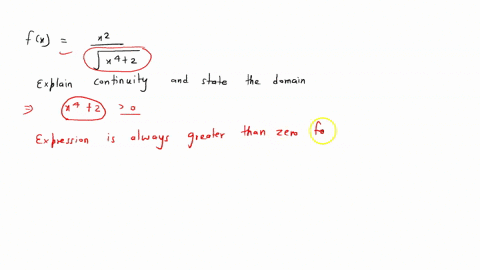 f(x) = x² / √(x⁴+2)
Explain continuity and state the domain
⇒ x⁴ + 2 > 0
Expression is always greater than zero fo